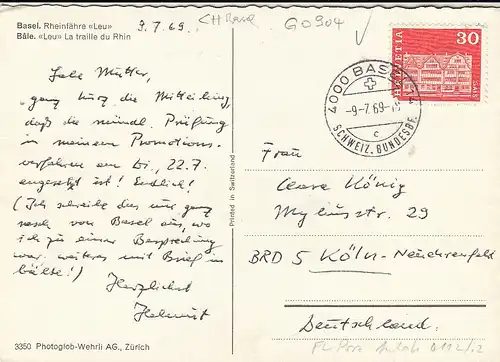 Basel. Rheinfähre «Leu»
Bâle. «Leu» La traille du Rhin
9.7.69
CH Basel
G0904
HELVETIA
30
4000 BASEL
-9-7.69-
c
SCHWEIZ. BUNDESF.
Liebe Mutter,
ganz kurz die Mitteilung,
daß die mündl. Prüfung
in meinem Promotions-
verfahren am Di., 22.7.
angesetzt ist! Endlich!
(Ich schreibe dies nur ganz
rasch von Basel aus, wo
ich zu einer Besprechung
war. weiteres mit Brief in
Bälde!) Herzlichst
Helmut
Printed in Switzerland
Frau
Clara König
Myliusstr. 29
BRD 5 KÖLN-Neuehrenfeld
Deutschland.
3350 Photoglob-Wehrli AG., Zürich